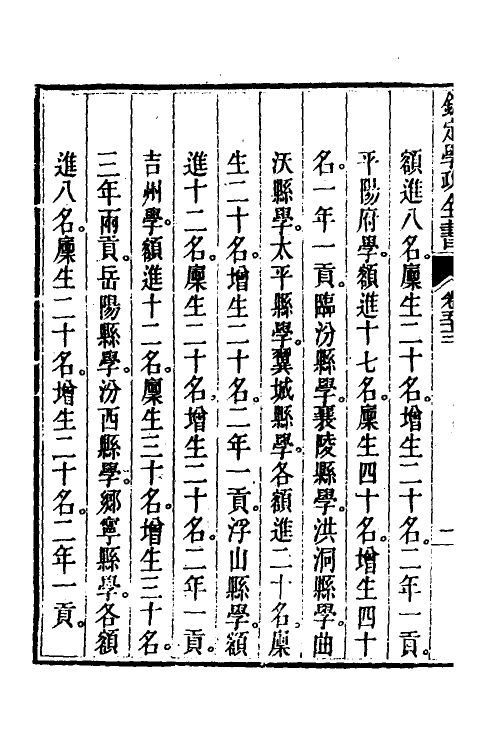 欽定學政全書 卷五十三 一
額進八名。廩生二十名。增生二十名。二年一貢。
平陽府學。額進十七名。廩生四十名。增生四十
名。一年一貢。臨汾縣學。襄陵縣學。洪洞縣學。曲
沃縣學。太平縣學。翼城縣學。各額進二十名。廩
生二十名。增生二十名。二年一貢。浮山縣學。額
進十二名。廩生二十名。增生二十名。二年一貢。
吉州學。額進十二名。廩生三十名。增生三十名。
三年兩貢。岳陽縣學。汾西縣學。鄉寧縣學。各額
進八名。廩生二十名。增生二十名。二年一貢。